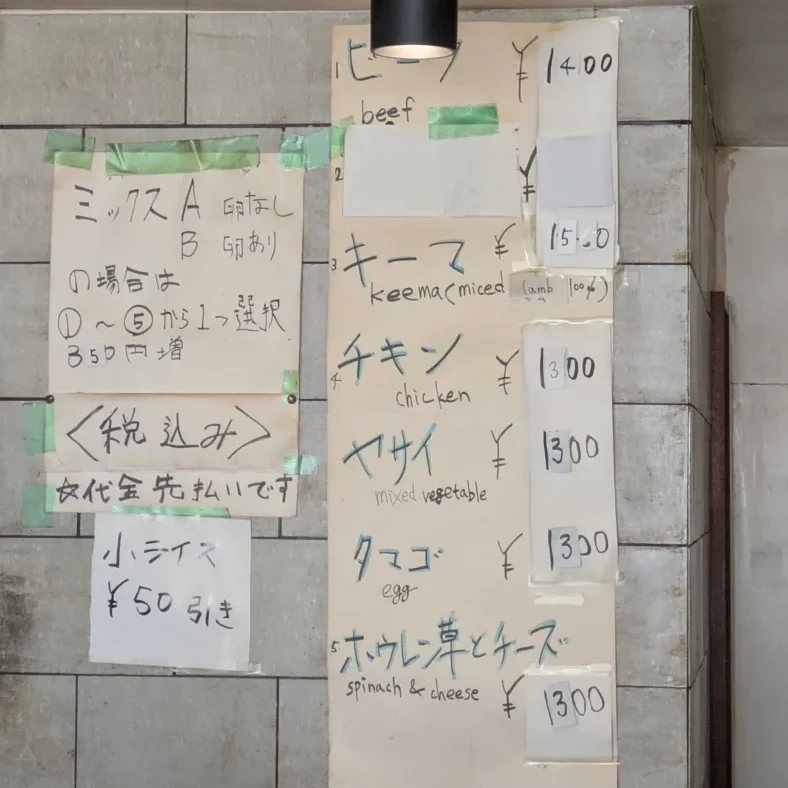 ミックス A 卵なし
B 卵あり
の場合は
①〜⑤から1つ選択
350円増
〈税込み〉
☆代金先払いです
小ライス
¥50引き
1 ビーフ ¥1400
beef
2 ¥
3 キーマ ¥1500
keema(miced lamb 100%)
4 チキン ¥1300
chicken
ヤサイ ¥1300
mixed vegetable
タマゴ ¥1300
egg
5 ホウレン草とチーズ
spinach & cheese ¥1300